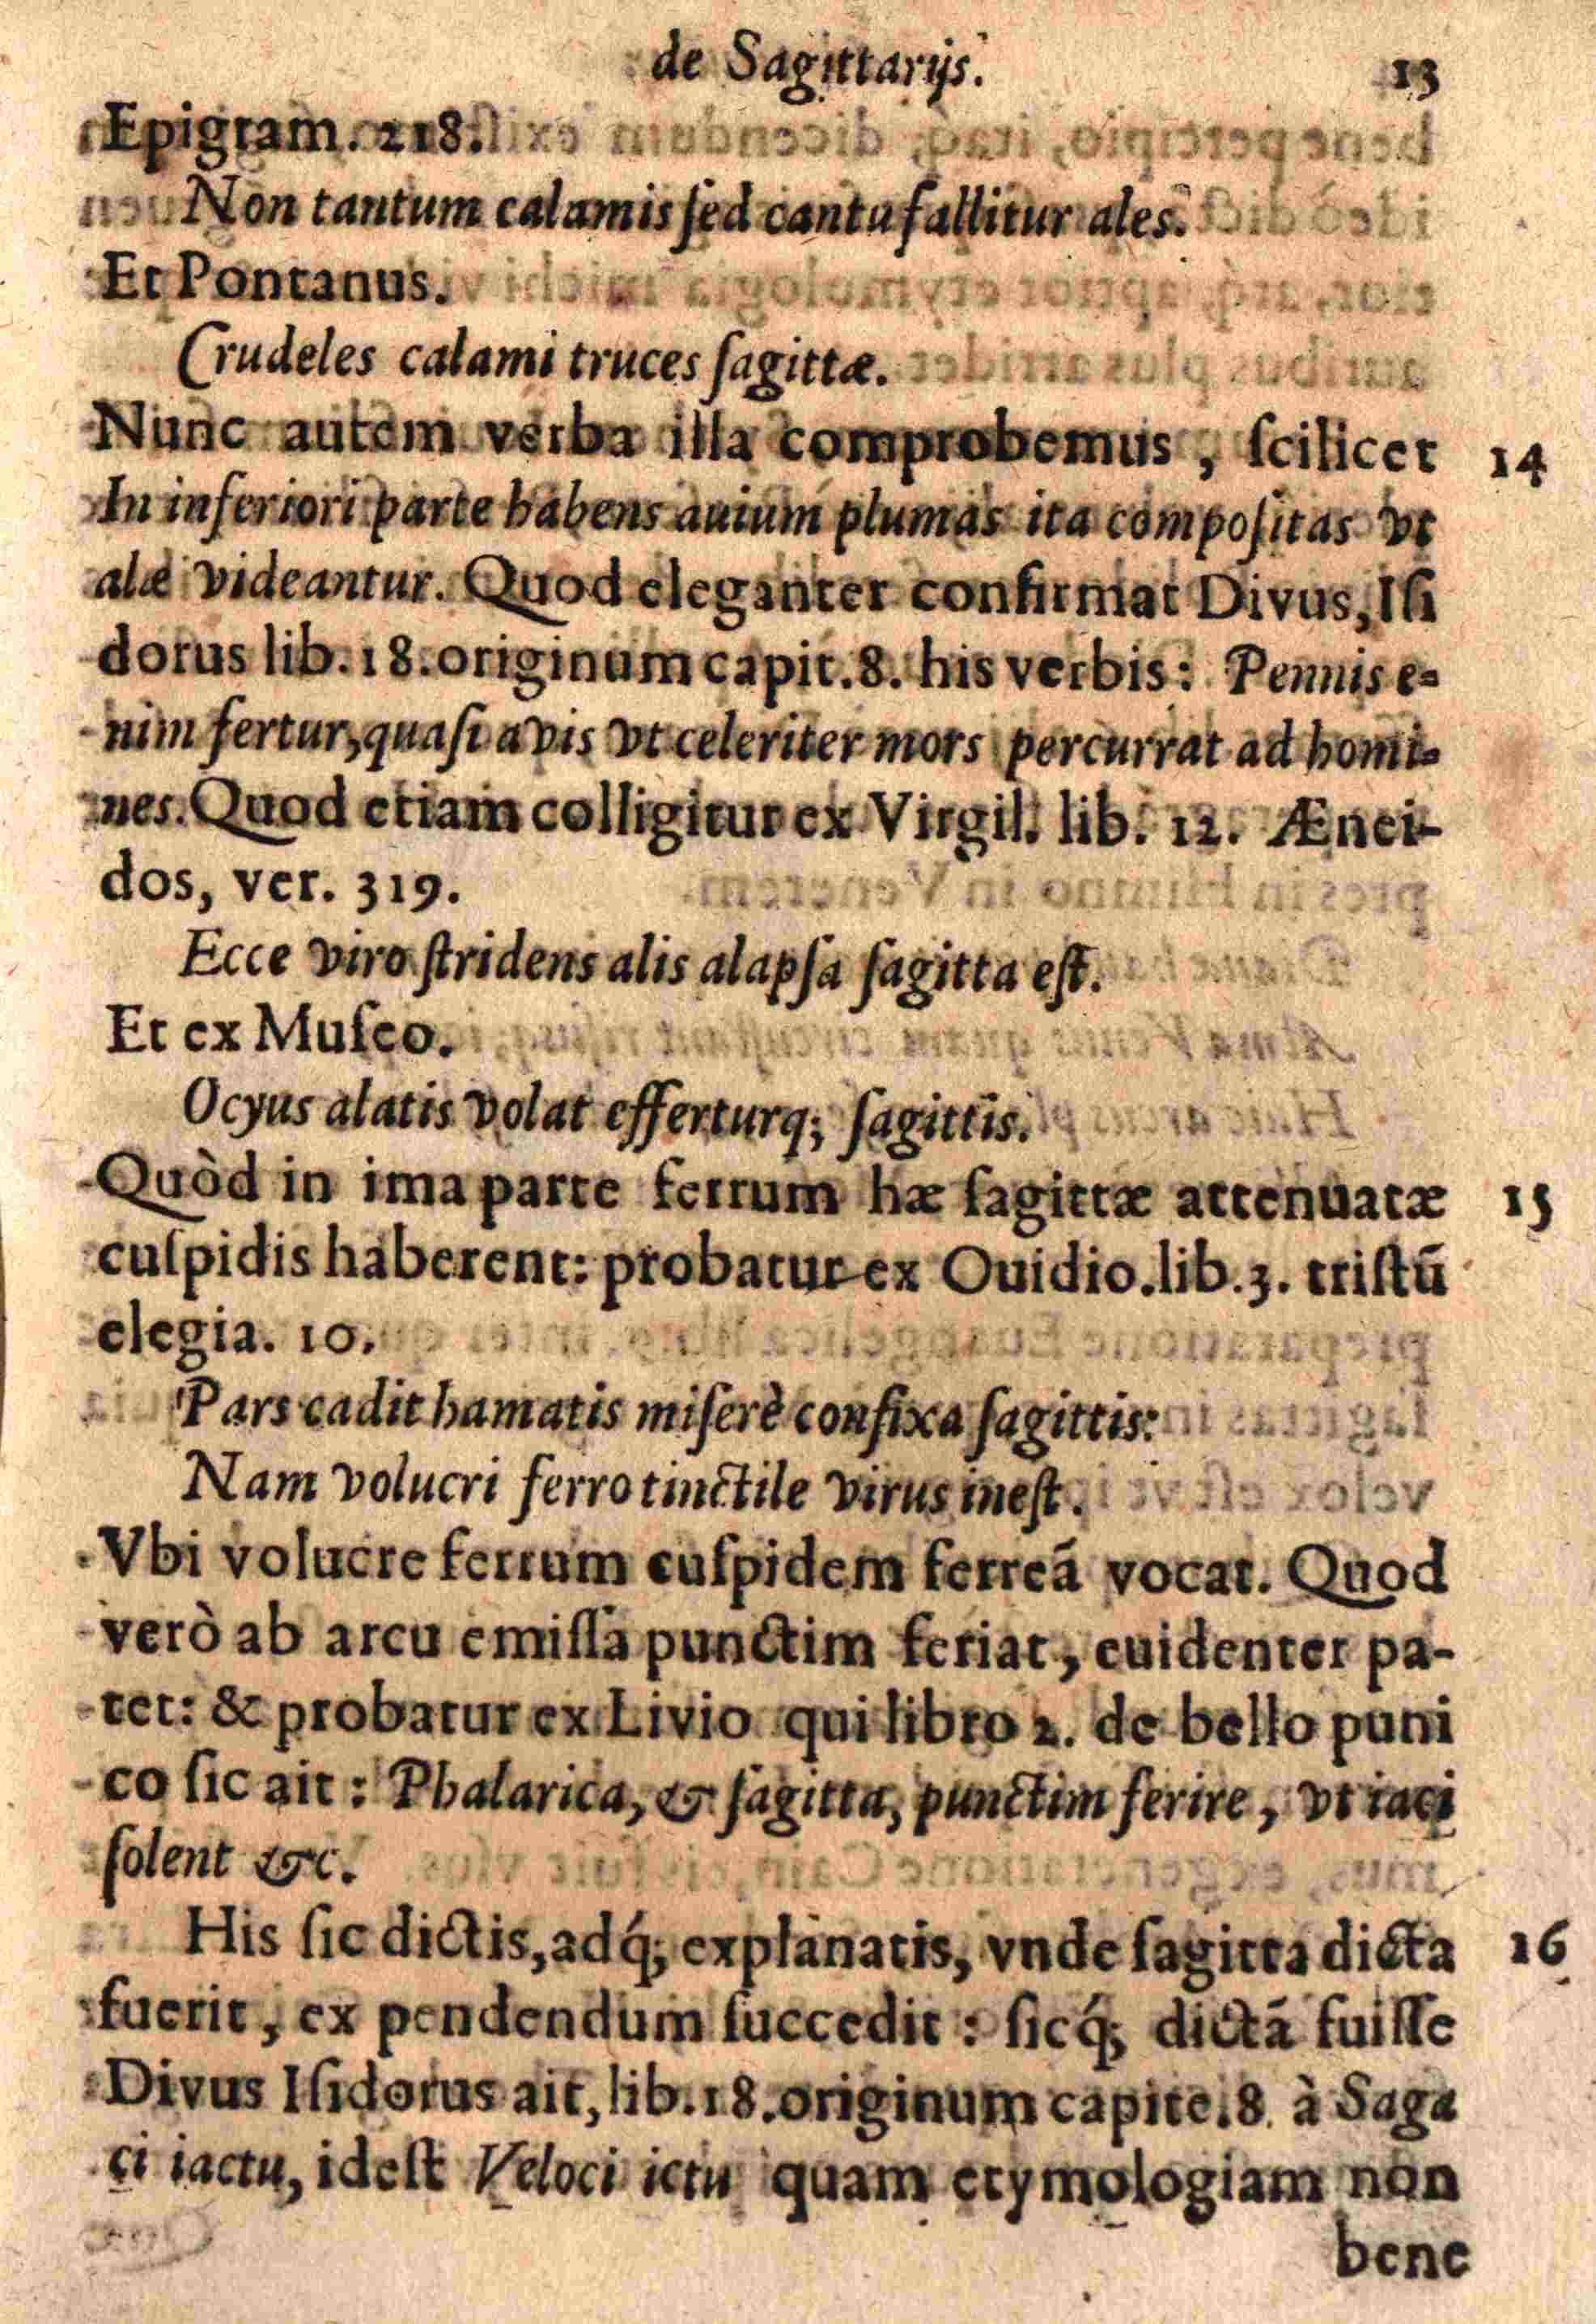 de Sagittarijs. 13
Epigram. 218.
Non tantum calamis ſed cantu fallitur ales.
Et Pontanus.
Crudeles calami truces ſagittæ.
Nunc autem verba illa comprobemus, ſcilicet 14
In inferiori parte habens auium plumas ita compoſitas vt
alæ videantur. Quod eleganter confirmat Divus, Iſi
dorus lib. 18. originum capit. 8. his verbis: Pennis e-
nim fertur, quaſi avis vt celeriter mors percurrat ad homi-
nes. Quod etiam colligitur ex Virgil. lib. 12. Ænei-
dos, ver. 319.
Ecce viro ſtridens alis alapſa ſagitta eſt.
Et ex Muſeo.
Ocyus alatis volat efferturq; ſagittis.
Quòd in ima parte ferrum hæ ſagittæ attenuatæ 15
cuſpidis haberent: probatur ex Ouidio. lib. 3. triſtū
elegia. 10.
Pars cadit hamatis miſerè confixa ſagittis:
Nam volucri ferro tinctile virus ineſt.
Vbi volucre ferrum cuſpidem ferreã vocat. Quod
verò ab arcu emiſſa punctim feriat, euidenter pa-
tet: & probatur ex Livio qui libro 2. de bello puni
co ſic ait: Phalarica, & ſagitta, punctim ferire, vt iaci
ſolent &c.
His ſic dictis, adq́; explanatis, vnde ſagitta dicta 16
fuerit, ex pendendum ſuccedit: ſicq́; dictã fuiſſe
Divus Iſidorus ait, lib. 18. originum capite. 8. à Saga
ci iactu, ideſt Veloci ictu quam etymologiam non
bene